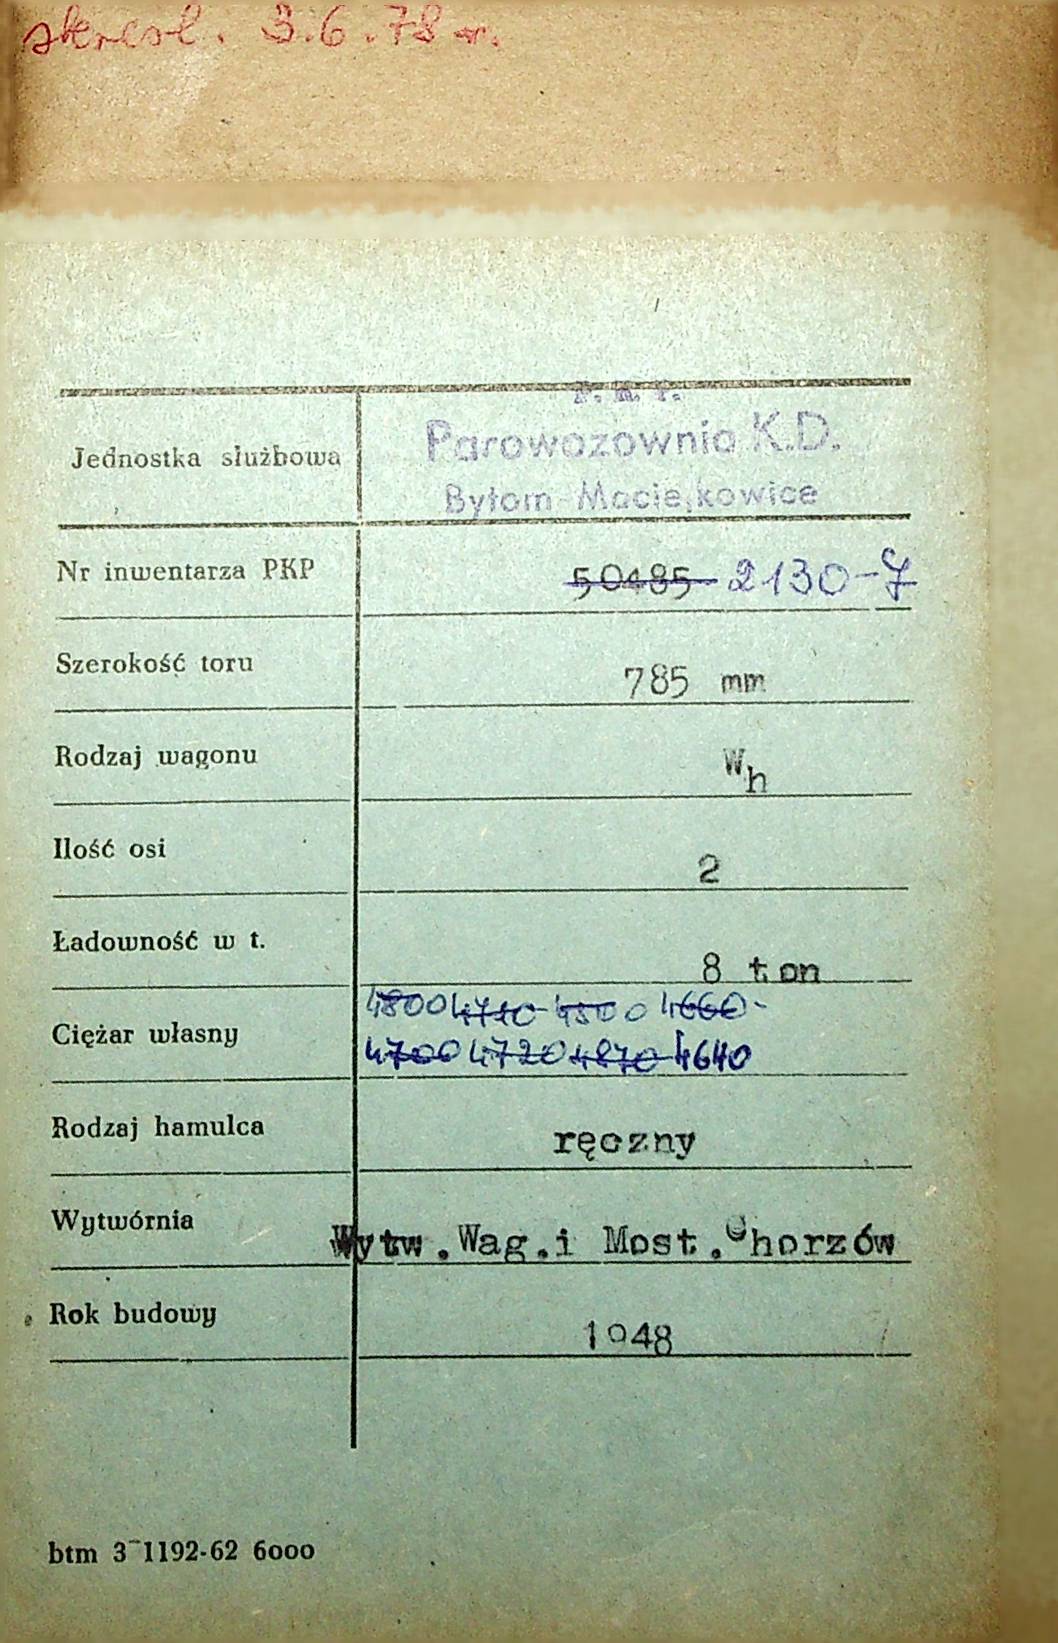 skreśl. 3.6.78 r.
Jednostka służbowa
Parowozownia K.D.
Bytom-Maciejkowice
Nr inwentarza PKP 50485 2130-7
Szerokość toru 785 mm
Rodzaj wagonu Wh
Ilość osi 2
Ładowność w t. 8 ton
4800 4710 4660
Ciężar własny
4700 4720 4870 4640
Rodzaj hamulca ręczny
Wytwórnia Wytw.Wag.i Most.Chorzów
Rok budowy 1948
btm 3-1192-62 6000